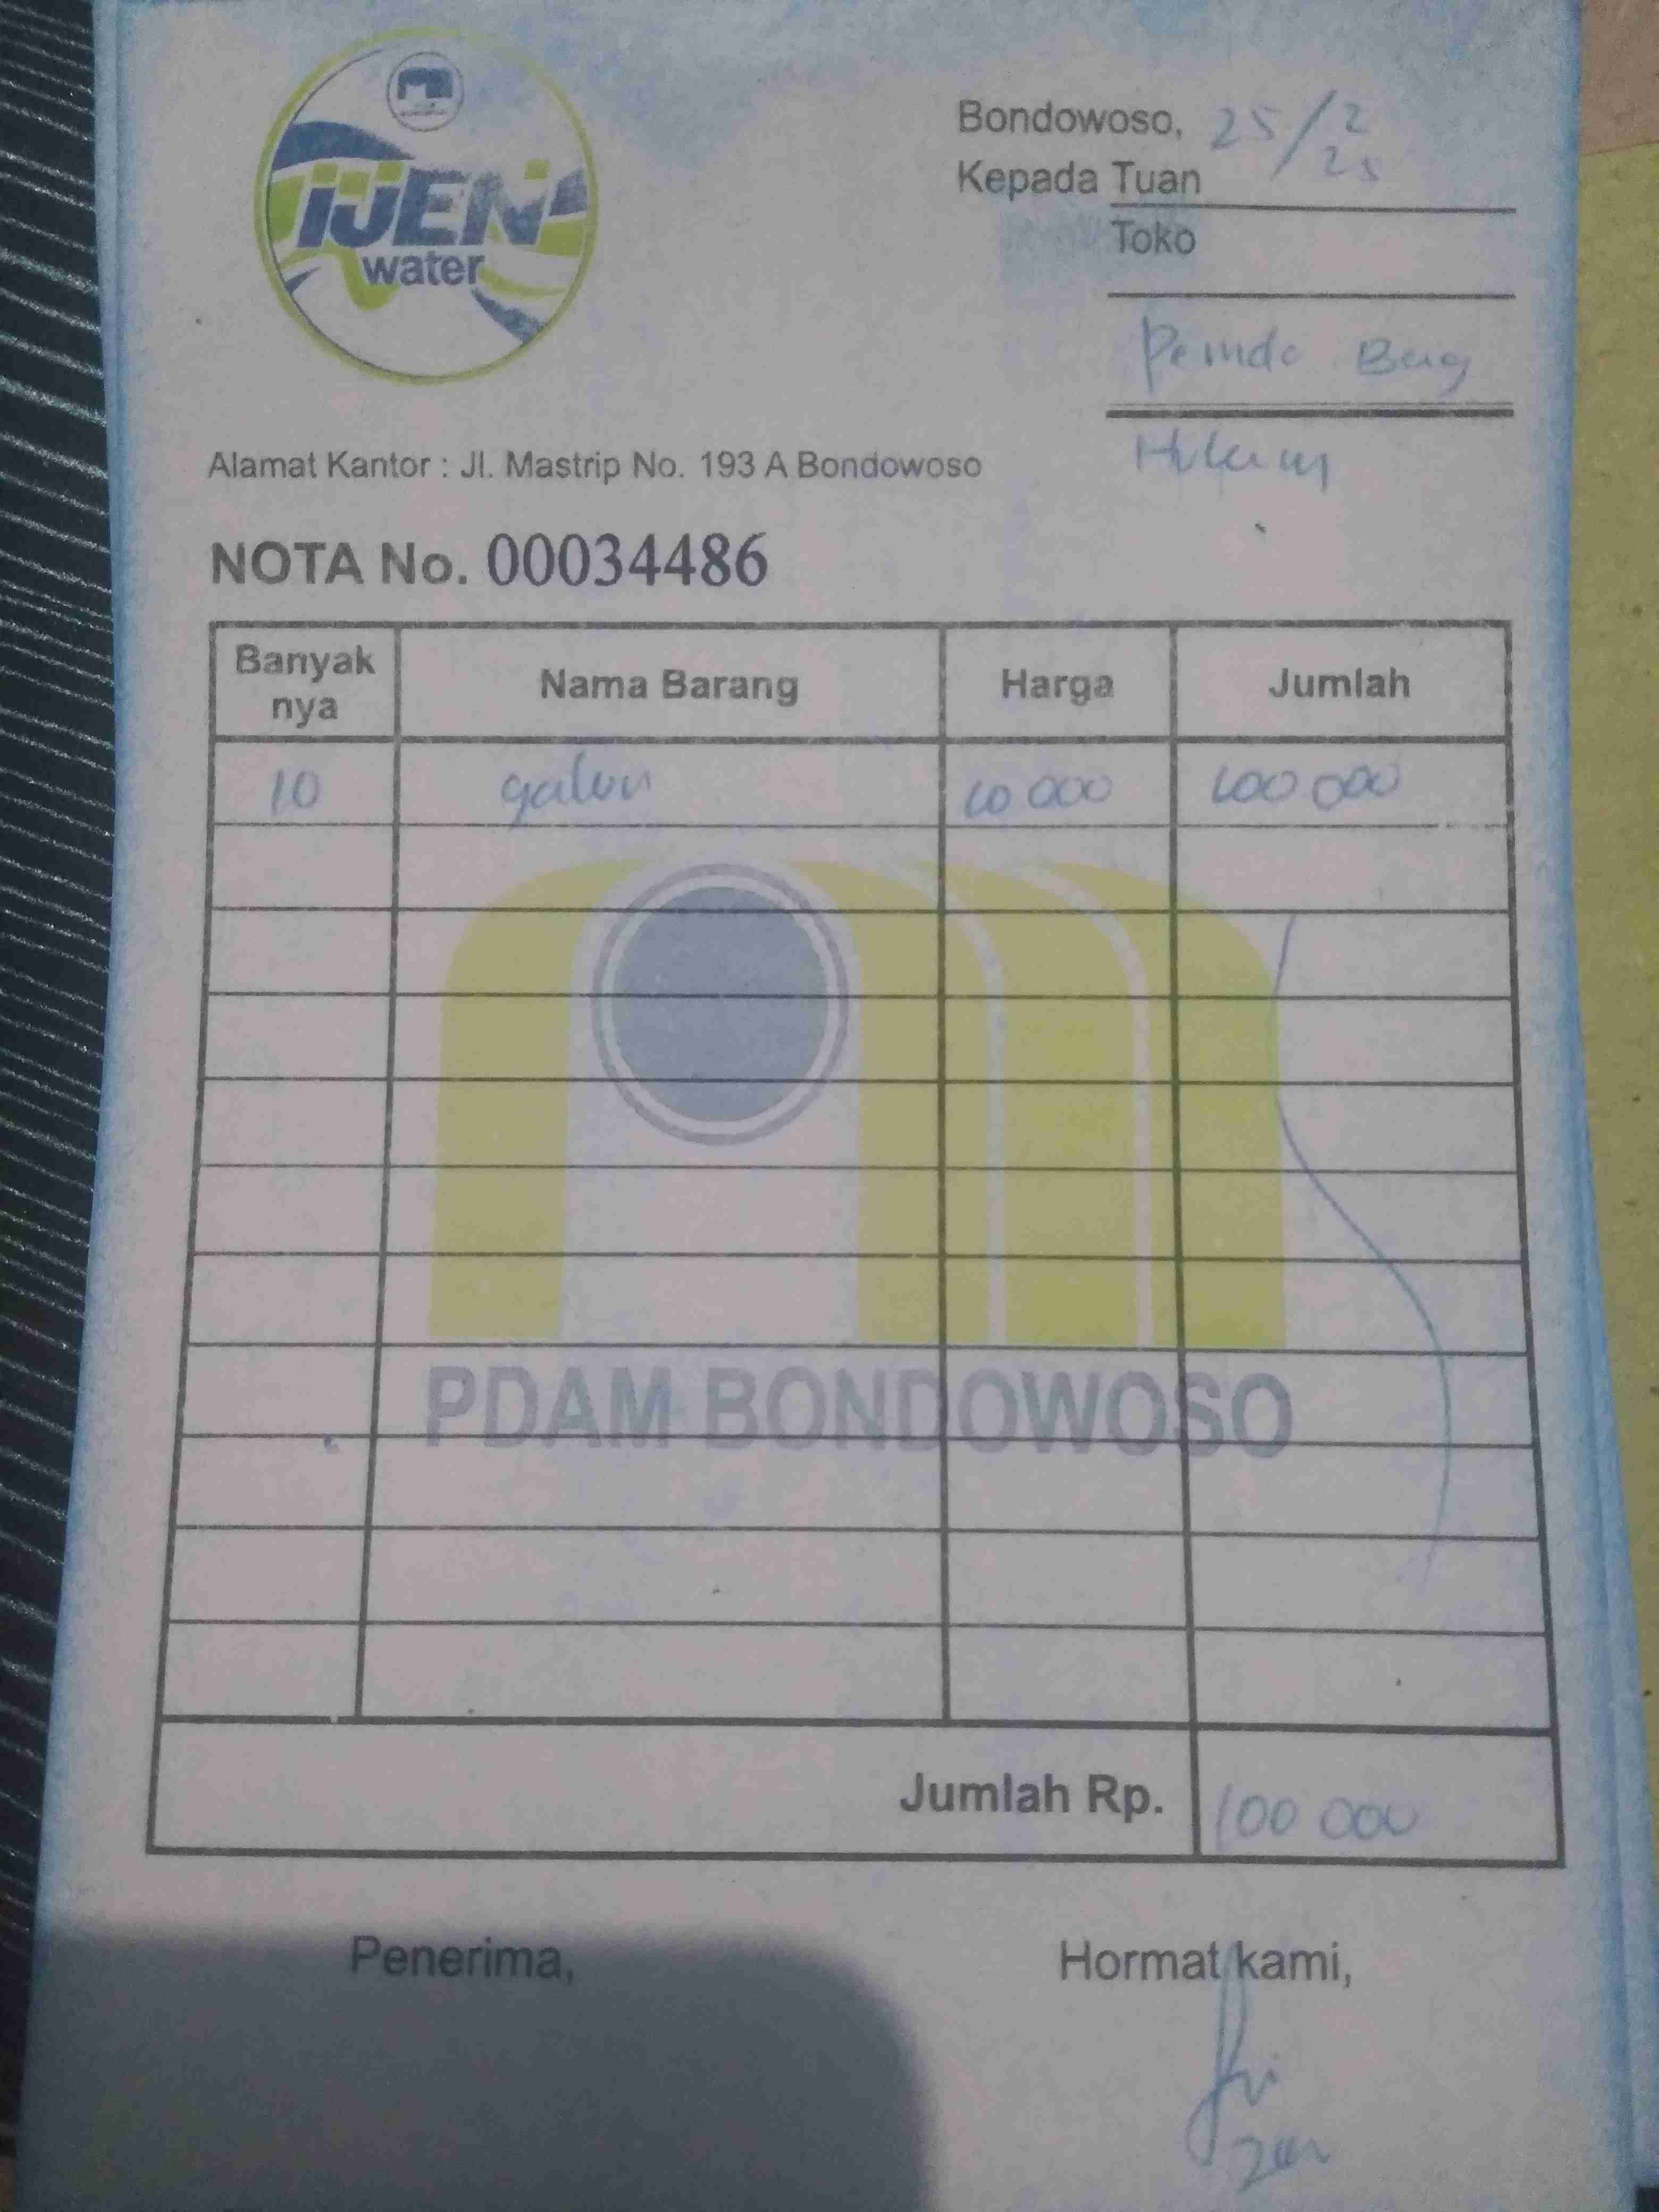 IJEN
water
Bondowoso, 25/2
25
Kepada Tuan
Toko
Pemda Bag
Hukum
Alamat Kantor : Jl. Mastrip No. 193 A Bondowoso
NOTA No. 00034486
Banyak nya Nama Barang Harga Jumlah
10 galon 10 000 100 000
PDAM BONDOWOSO
Jumlah Rp. 100 000
Penerima, Hormat kami,